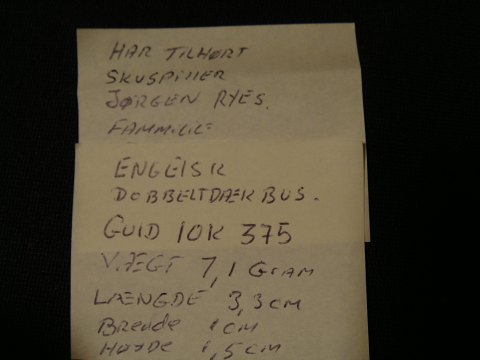 HAR TILHØRT
SKUSPILLER
JØRGEN RYES.
FAMMILIE
ENGELSK
DOBBELTDÆK BUS.
GULD 10K 375
VÆGT 7,1 GRAM
LÆNGDE 3,3 CM
Bredde 1 CM
HØJDE 1,5 CM